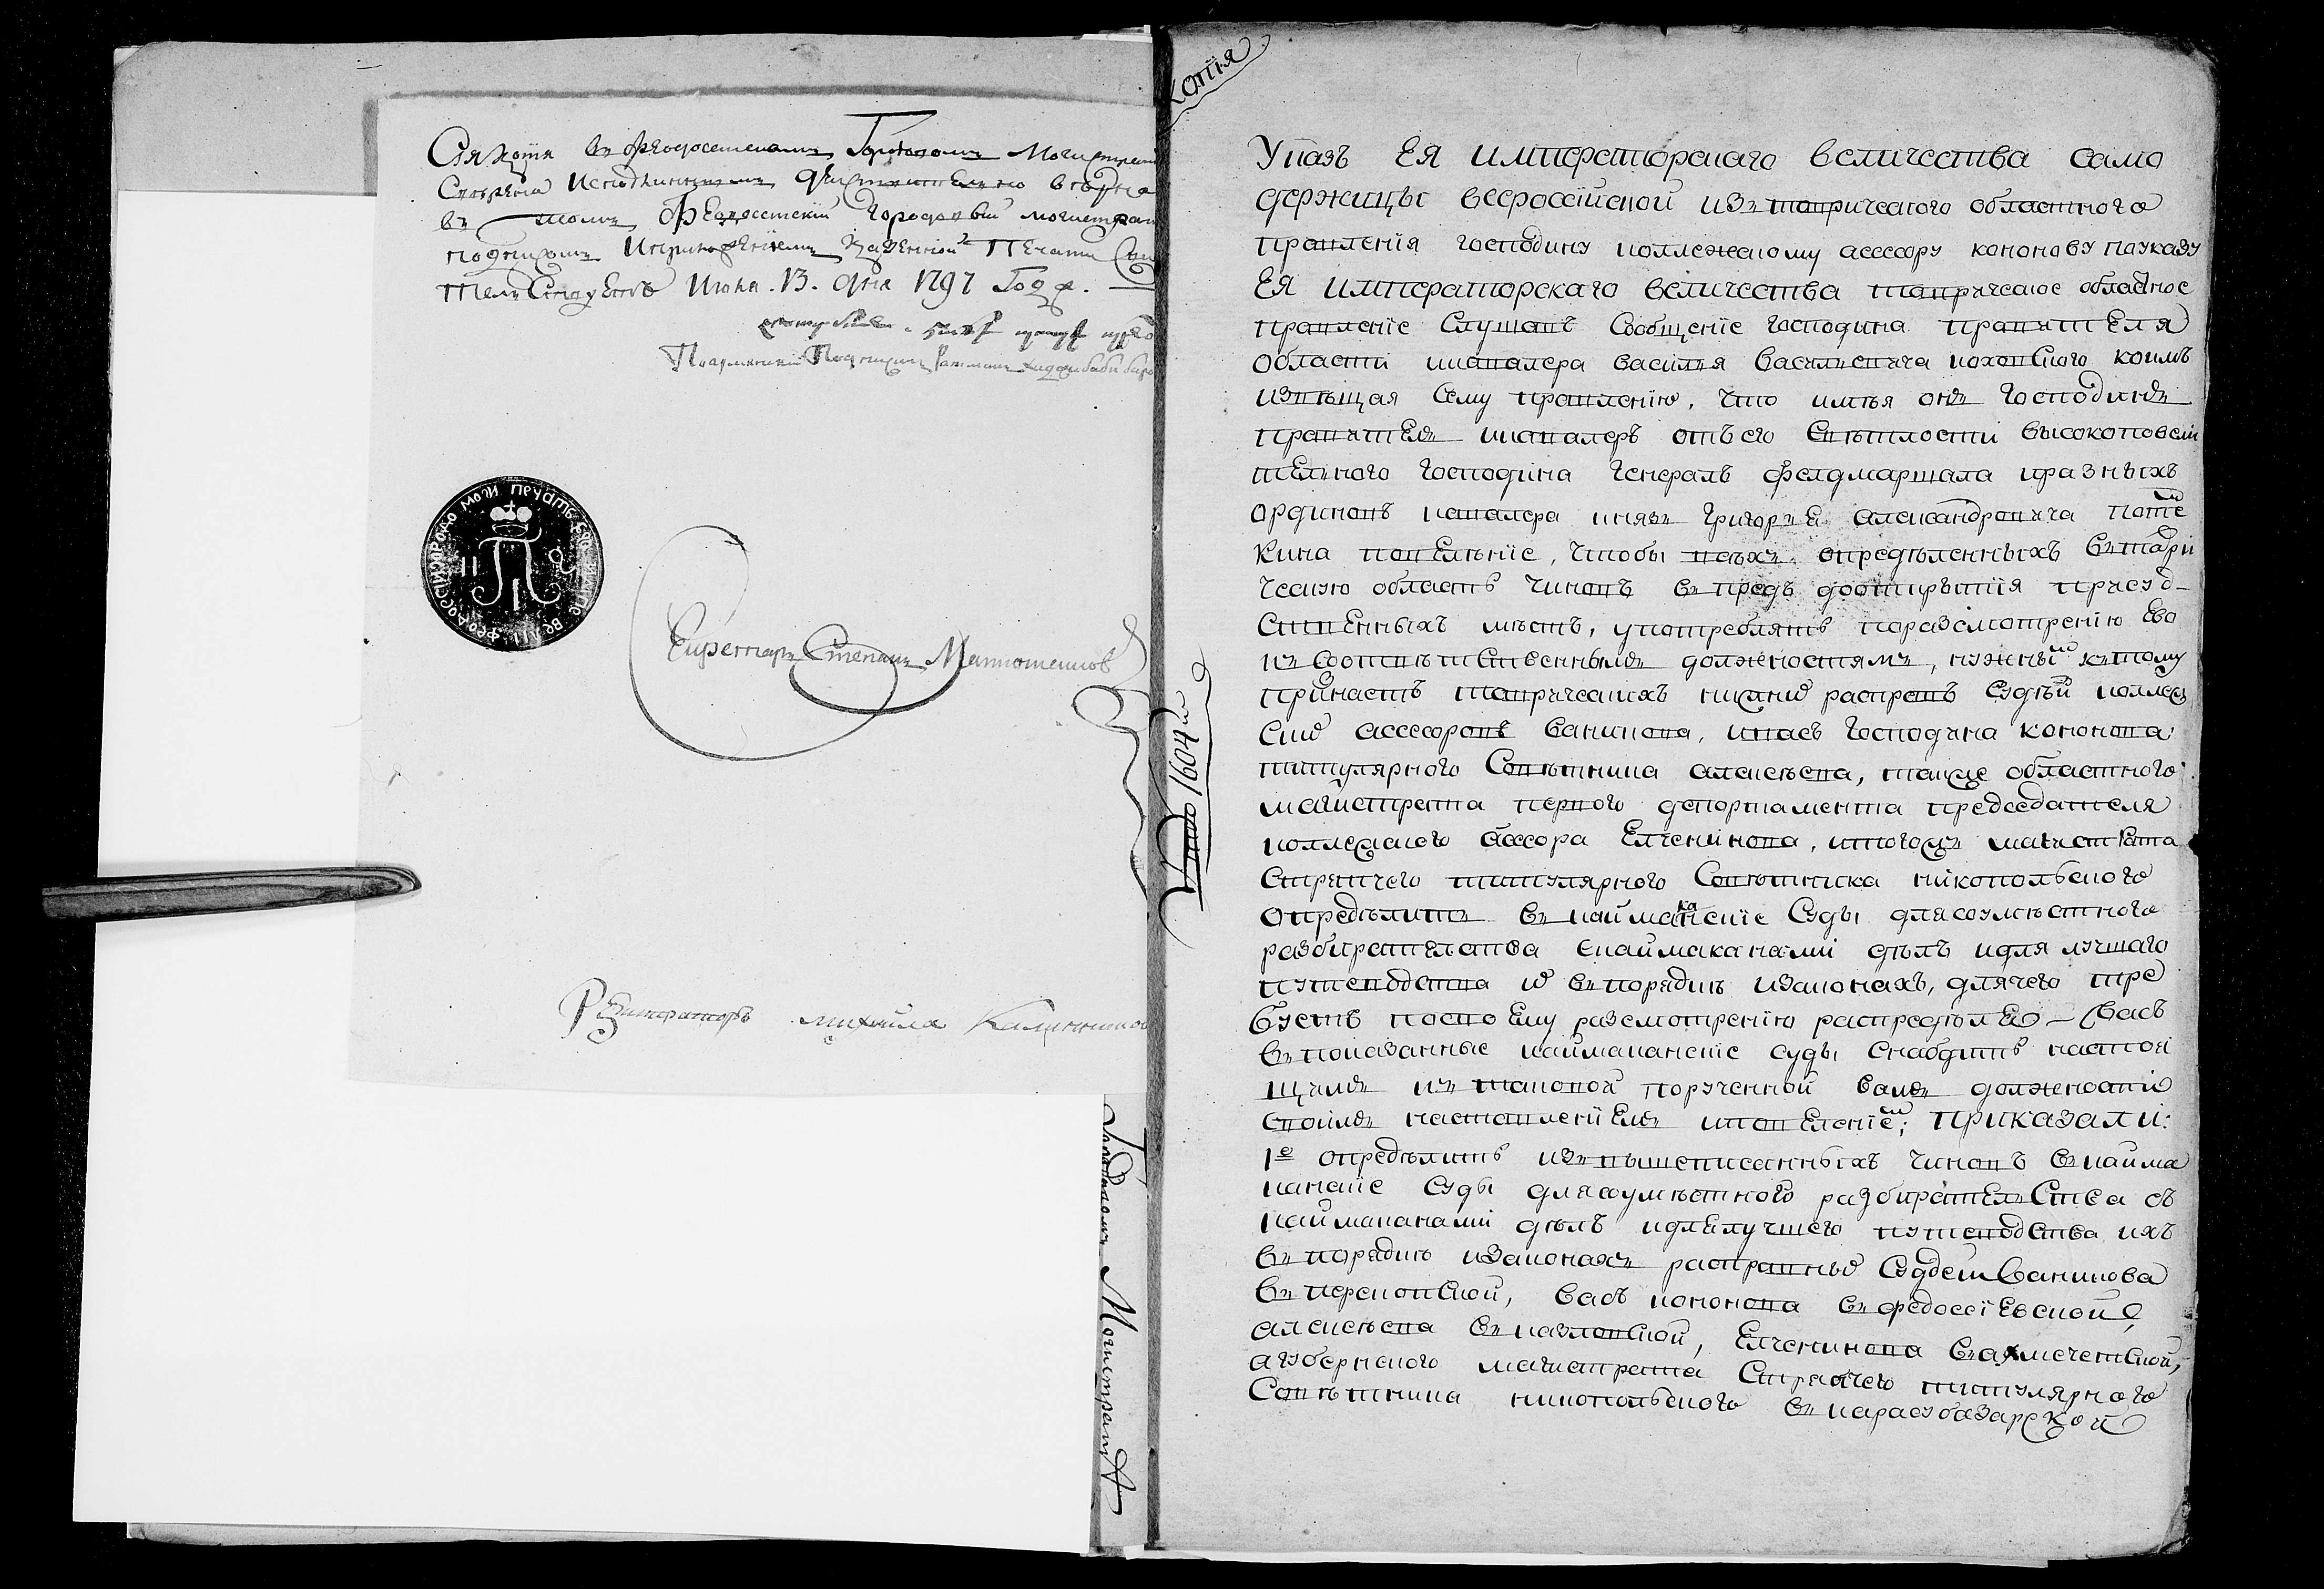 Сія копія въ феодосійскомъ Городовомъ Магистратѣ
въ томъ Феодосійскій городовый магистрат
подписомъ и приложеніемъ казенной печати
Июня 13. дня 1797 Года.
Секретарь Степанъ
Регистраторъ михайла Калинников
Городовомъ Могистрат
копія
Указъ Ея императорскаго величества само
держицы всероссійской изъ таврического областного
правленія господину коллежскому ассесору кононову по указу
Ея императорскаго величества таврическое областное
правленіе Слушавъ Сообщеніе господина правителя
области кавалера василья васильевича коховского коимъ
извѣщая сему правленію, что имѣя онъ господинъ
правитель и кавалеръ отъ его Свѣтлости высокоповели
тельного господина генералъ фелдмаршала и разныхъ
ординовъ кавалера князь григорья александровича потем
кина повелѣніе, чтобы всѣхъ опредѣленныхъ въ таври
ческую область чиновъ въ предь до открытія присуд-
ственныхъ мѣстъ, употреблять по разсмотрению Ево
къ соотвѣтственнымъ должностямъ, нужным к тому
признаетъ таврическихъ нижней расправъ судьи коллеж
ских ассесоровъ ванинова, и васъ господина кононова
титулярного Совѣтника алексѣева, также областного
магистрата первого департамента председателя
коллежского ассесора Елченинова, и того ж магистрата
стряпчего титулярного Совѣтника никопольского
опредѣлить въ каймаканские Суды для совмѣстного
разбирательства с каймаканами дѣлъ и для лучшаго
путеводства их въ порядкѣ и законахъ, для чего тре
буетъ по своему разсмотрению распредѣля васъ
въ показанные каймаканские суды снабдить настоя
щимъ къ таковой порученной вамъ должности
своимъ наставленіемъ и повеленіем; приказали:
1е опредѣлить изъ вышеписанныхъ чиновъ в кайма
канские суды для совмѣстного разбирательства съ
каймаканами дѣлъ и для лучшего путеводства ихъ
въ порядкѣ и законахъ расправныхъ Судьей Ванинова
въ перекопской, васъ кононова въ федосіевской,
алексѣева въ козловской, Елченинова в ахмечетской,
а губернского магистрата Стряпчего титулярного
Совѣтника никопольского въ карасубазарской